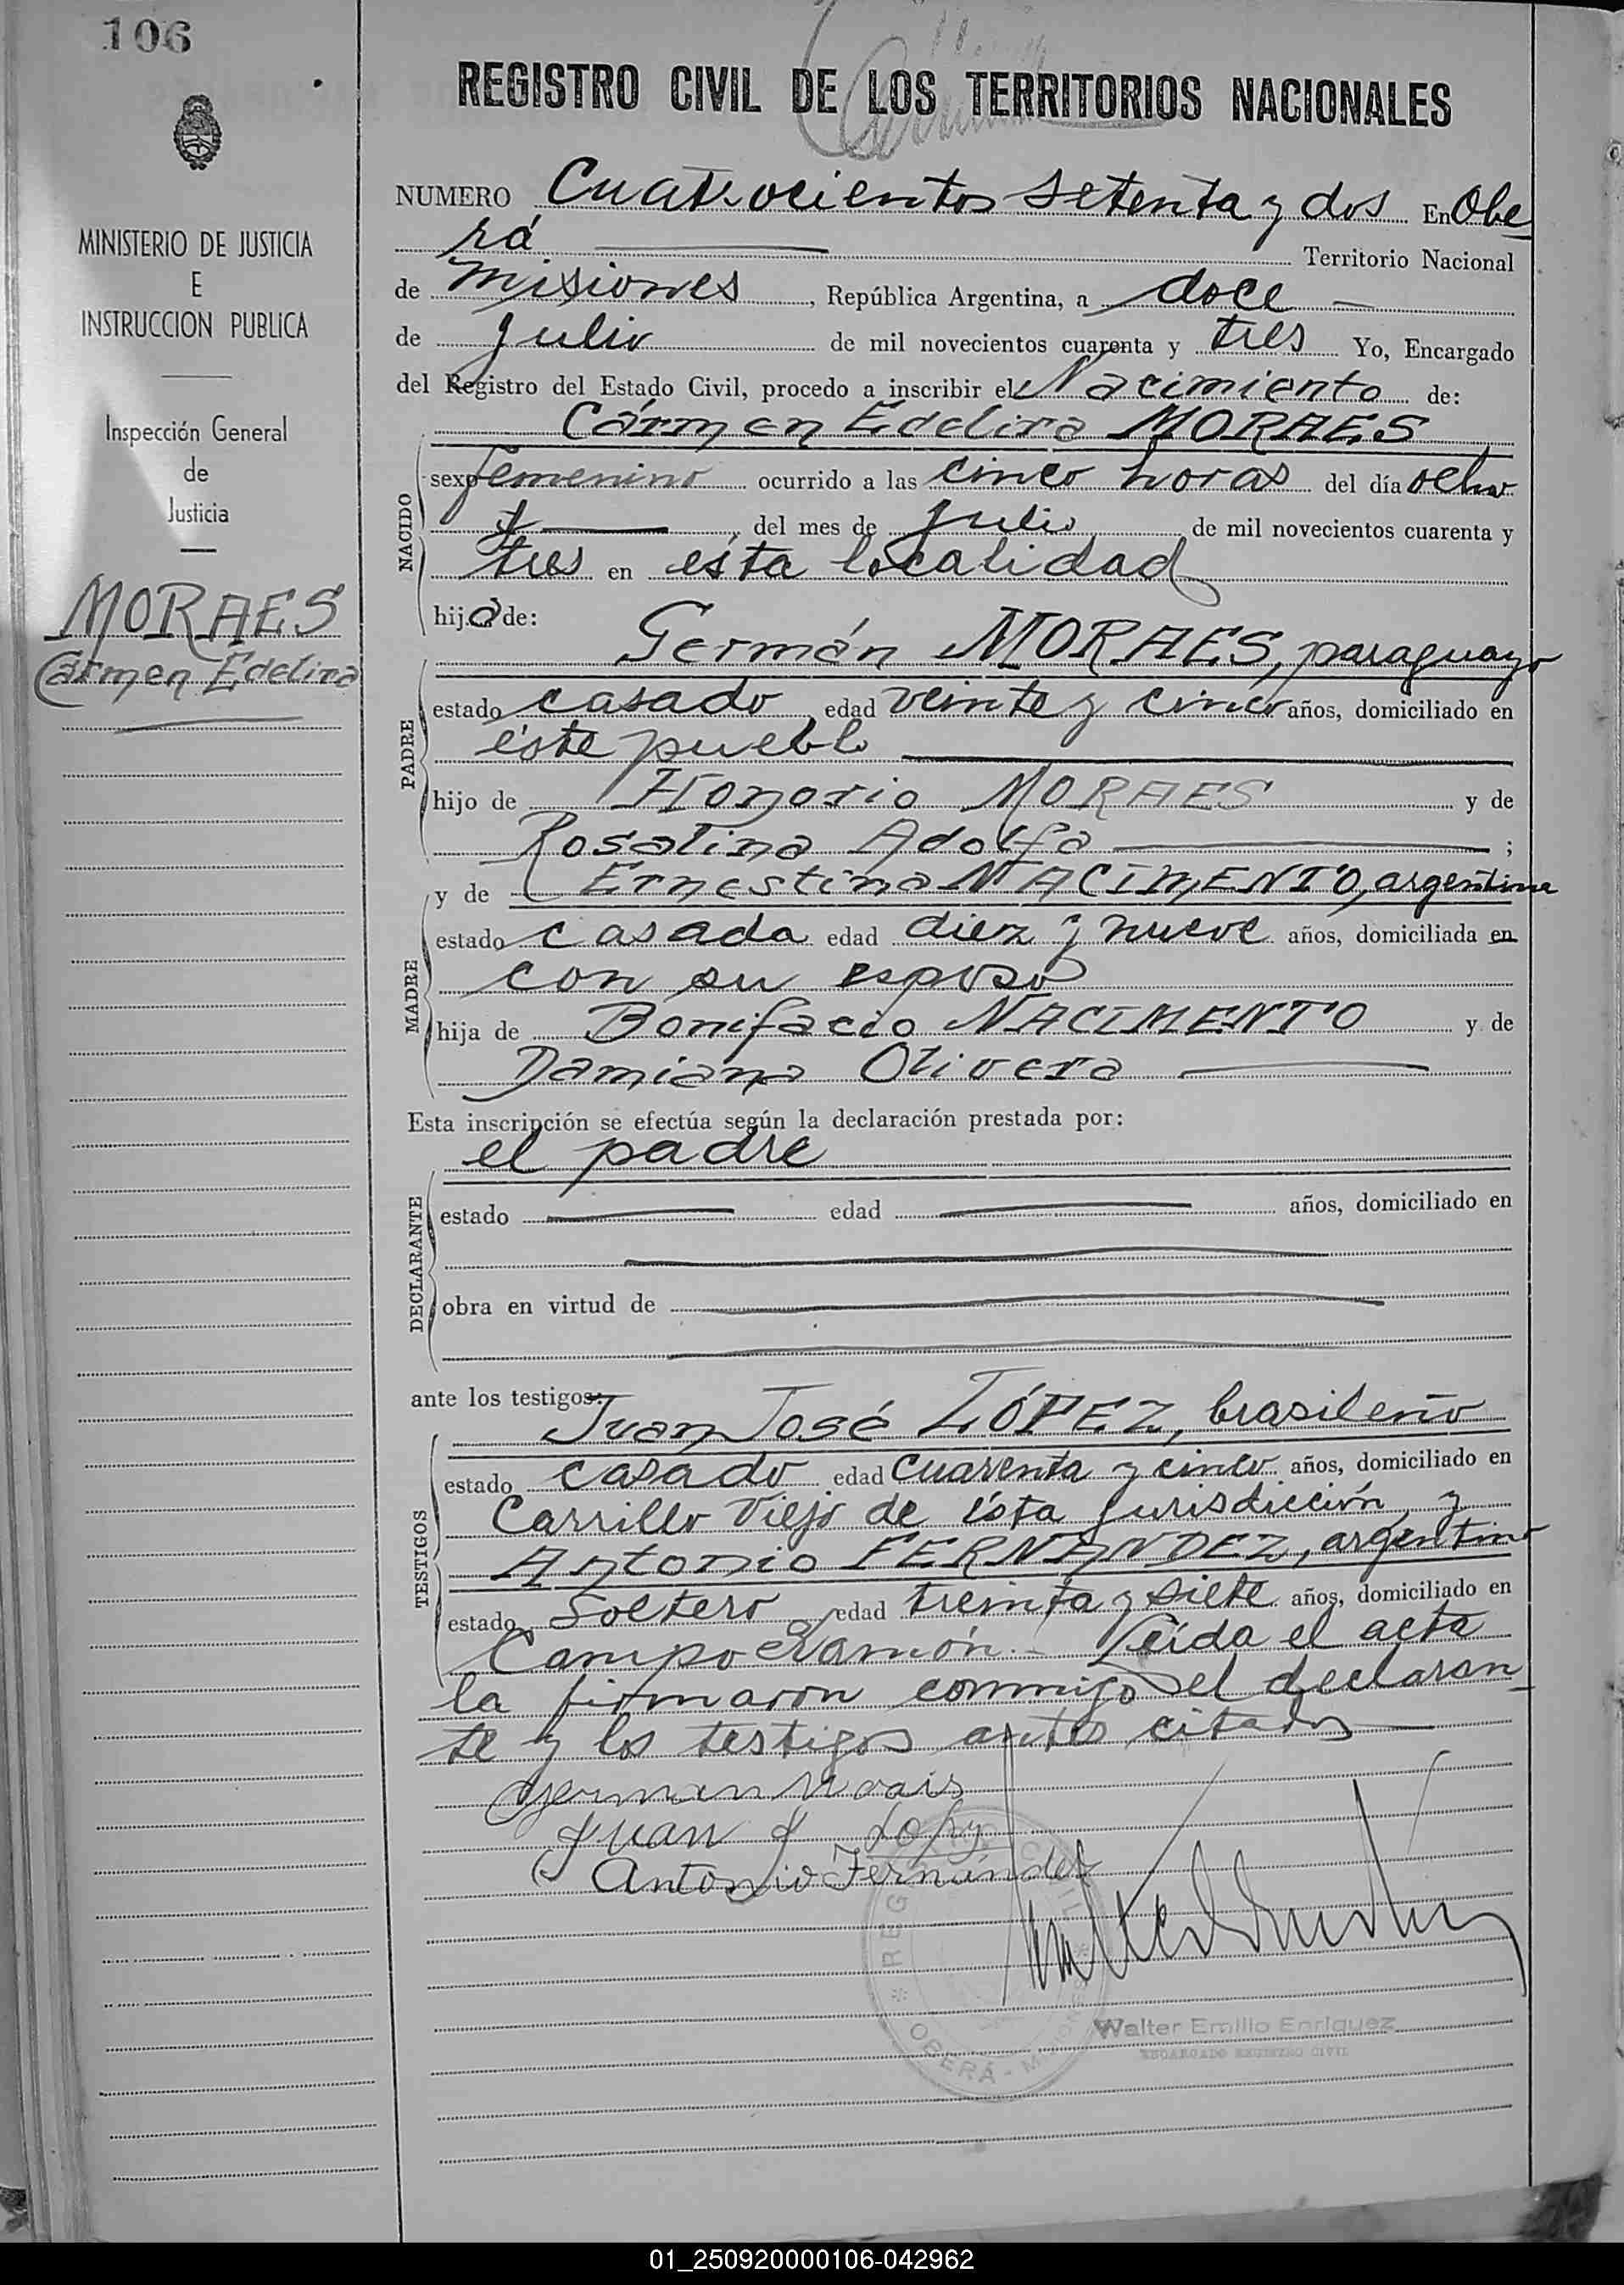 106
REGISTRO CIVIL DE LOS TERRITORIOS NACIONALES
MINISTERIO DE JUSTICIA
E
INSTRUCCION PUBLICA
Inspección General
de
Justicia
MORAES
Carmen Edelira
NUMERO Cuatrocientos setenta y dos En Obe
rá Territorio Nacional
de Misiones, República Argentina, a doce
de Julio de mil novecientos cuarenta y tres Yo, Encargado
del Registro del Estado Civil, procedo a inscribir el Nacimiento de:
Cármen Edelira MORAES
NACIDO
sexo femenino ocurrido a las cinco horas del día ocho
del mes de Julio de mil novecientos cuarenta y
tres en ésta localidad
hija de:
PADRE
Germán MORAES, paraguayo
estado casado, edad veinte y cinco años, domiciliado en
éste pueblo
hijo de Honorio MORAES y de
Rosalina Adolfa ;
MADRE
y de Ernestina NACIMENTO, argentina
estado casada edad diez y nueve años, domiciliada en
con su esposo
hija de Bonifacio NACIMENTO y de
Damiana Olivera
Esta inscripción se efectúa según la declaración prestada por:
el padre
DECLARANTE
estado edad años, domiciliado en
obra en virtud de
ante los testigos:
TESTIGOS
Juan José LÓPEZ, brasileño
estado casado edad cuarenta y cinco años, domiciliado en
Carrillo Viejo de ésta jurisdicción y
Antonio FERNANDEZ, argentino
estado Soltero edad treinta y siete años, domiciliado en
Campo Ramón.- Leída el acta
la firmaron conmigo el declaran_
te y los testigos antes citados
German Morais
Juan J Lopez
Antonio Fernández
REG CIVIL
OBERÁ - MISIONES
Walter Emilio Enriquez
ENCARGADO REGISTRO CIVIL
01_250920000106-042962